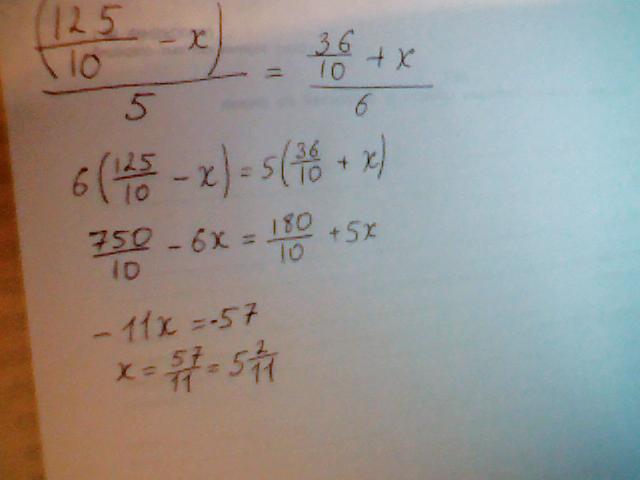 (125/10 - x)/5 = (36/10 + x)/6
6(125/10 - x) = 5(36/10 + x)
750/10 - 6x = 180/10 + 5x
- 11x = -57
x = 57/11 = 5 2/11